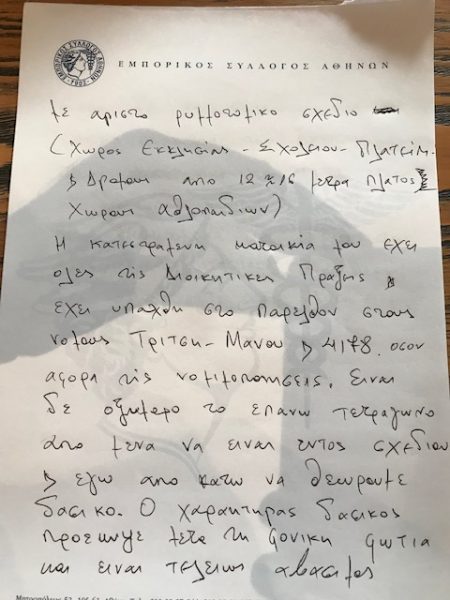 ΕΜΠΟΡΙΚΟΣ ΣΥΛΛΟΓΟΣ ΑΘΗΝΩΝ
ΕΜΠΟΡΙΚΟΣ ΣΥΛΛΟΓΟΣ ΑΘΗΝΩΝ
1902
με αριστο ρυμοτομικο σχεδιο
(Χωρος Εκκλησιας - Σχολειου - Πλατεια.
& Δρομοι απο 12 & 16 μετρα πλατος
Χωρους αθλοπαιδιων)
Η κατεστραμενη κατοικια μου εχει
ολες τις Διοικητικες Πραξης &
εχει υπαχθη στο παρελθον στους
νομους Τριτση - Μανου & 4178. οσον
αφορα τις νομιμοποιησεις. Ειναι
δε οξυμορο το επανω τετραγωνο
απο μενα να ειναι εντος σχεδιου
& εγω απο κατω να θεωρουμε
δασικο. Ο χαρακτηρας δασικος
προεκυψε μετα τη φονικη φωτια
και ειναι τελειως αβασιμος